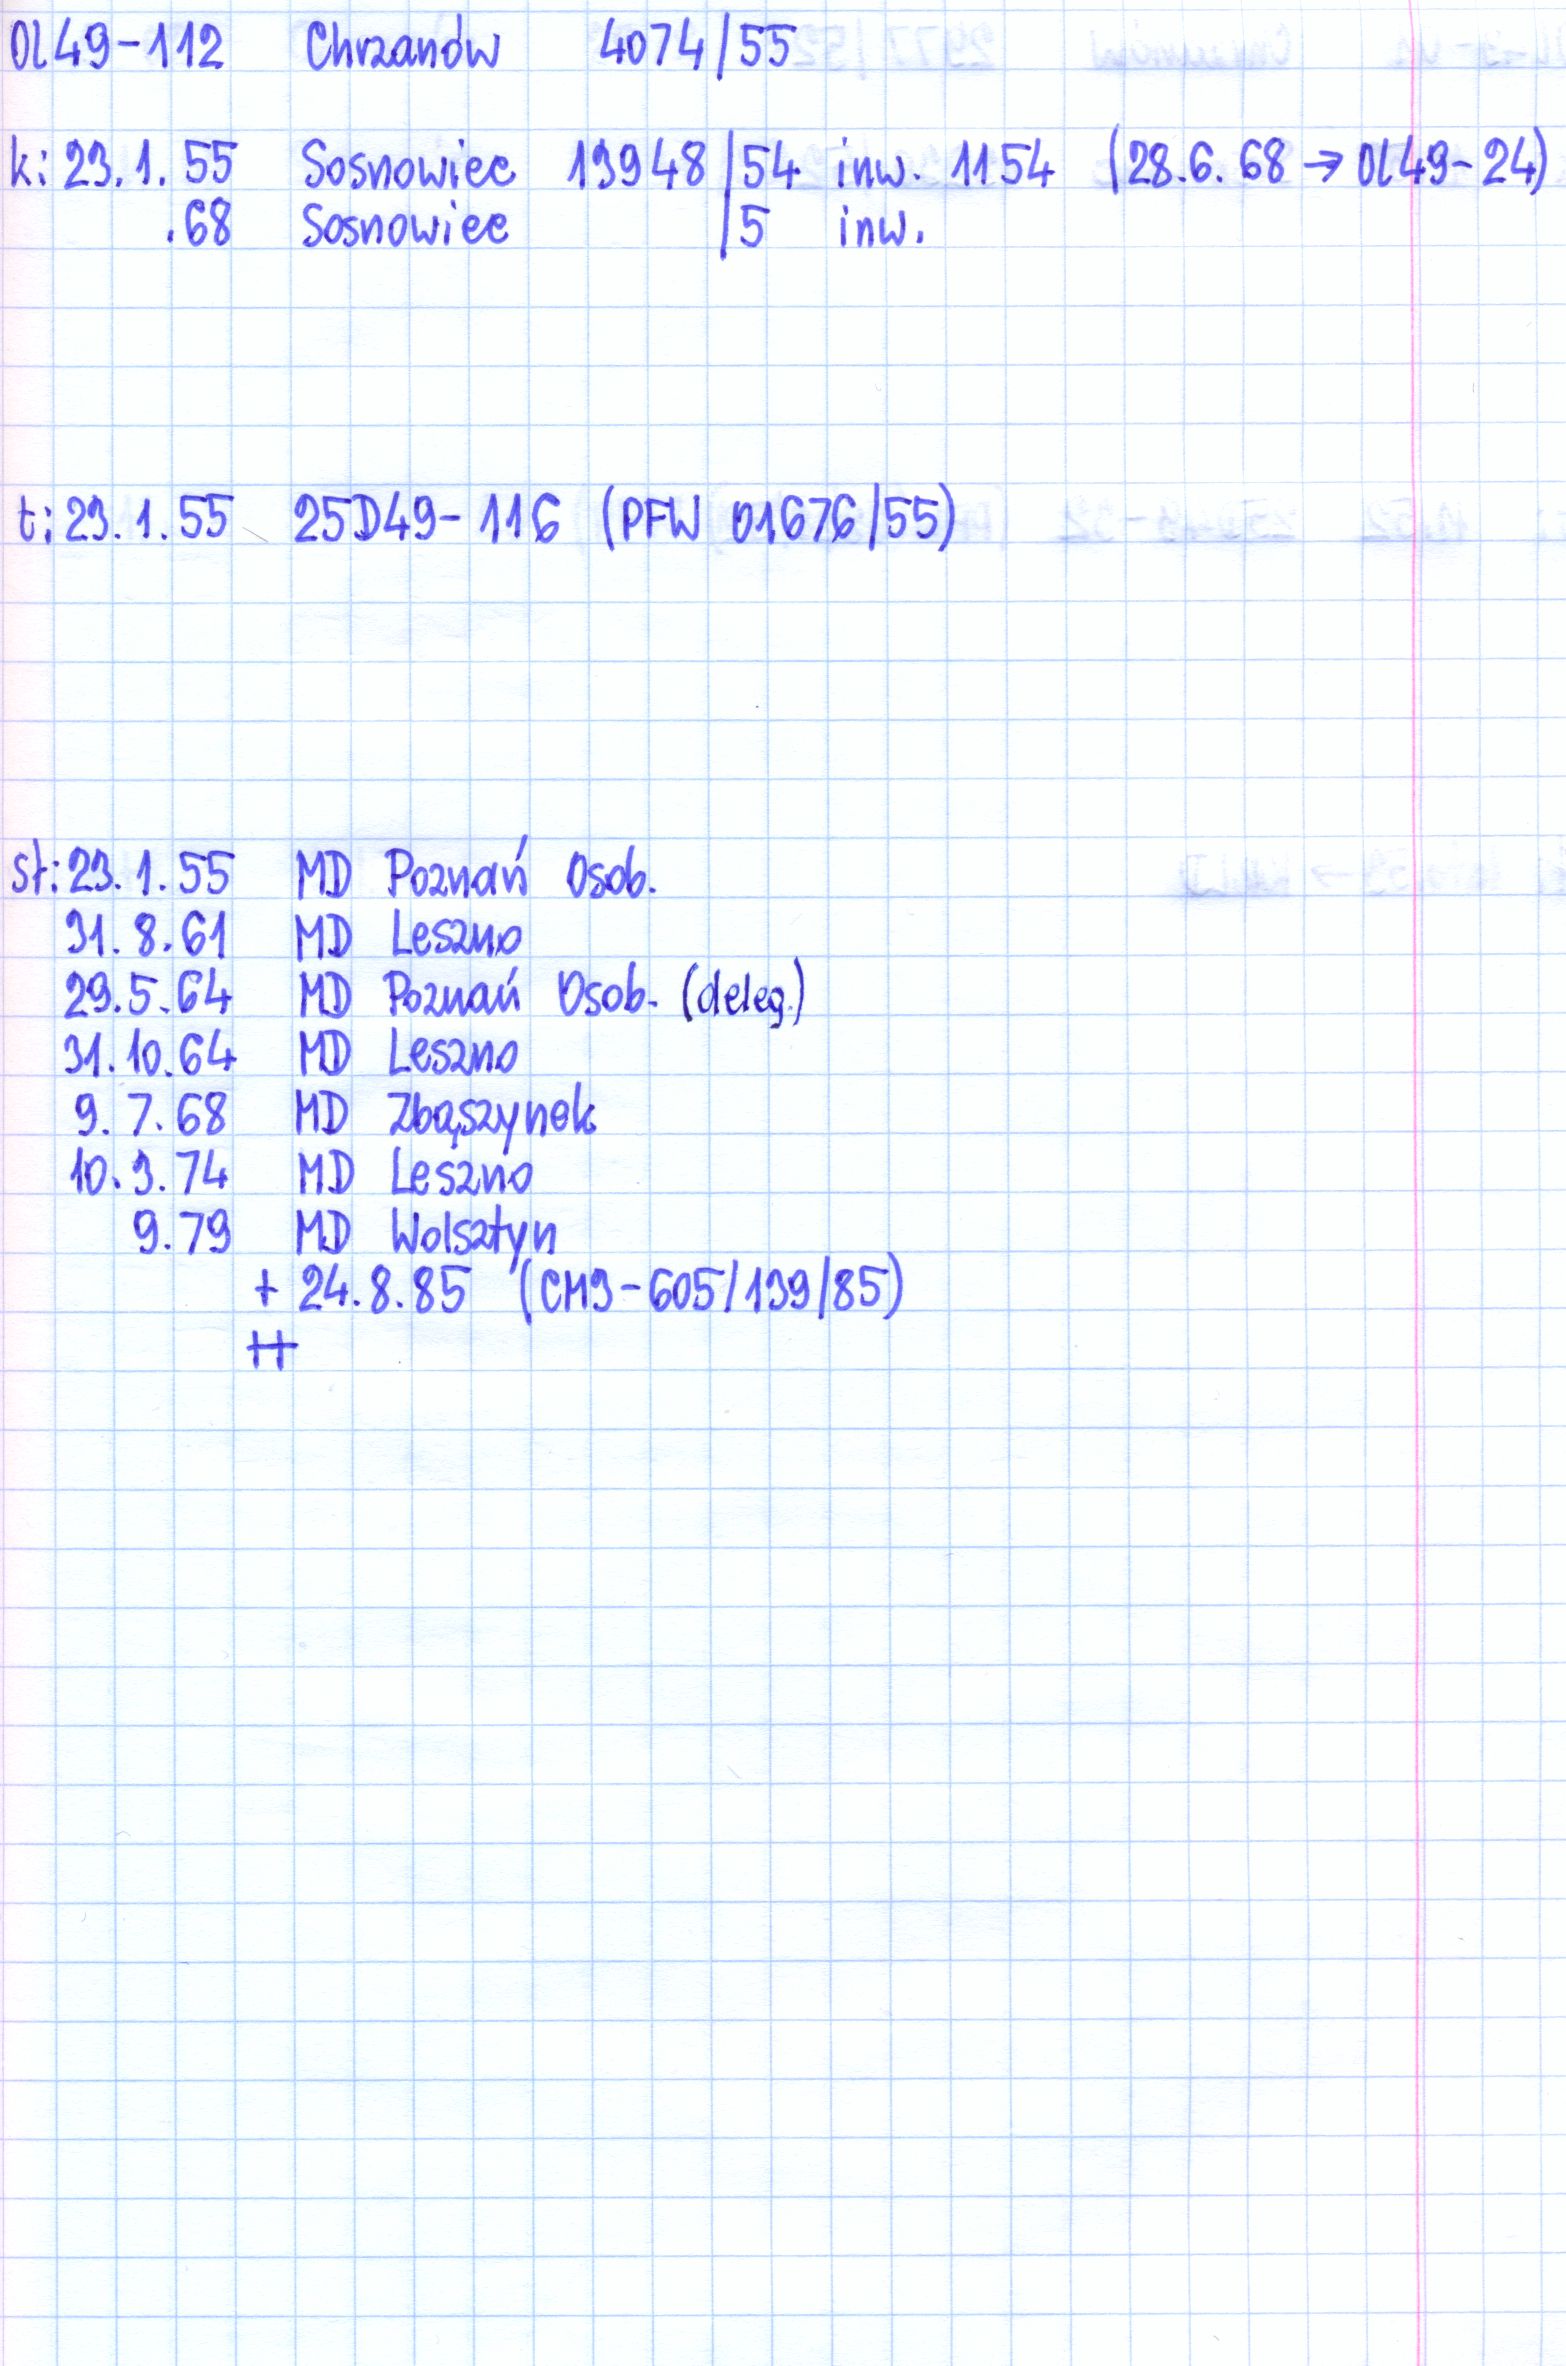 Ol49-112 Chrzanów 4074/55
k: 23.1.55 Sosnowiec 13948/54 inw. 1154 (28.6.68 → Ol49-24)
.68 Sosnowiec /5 inw.
t: 23.1.55 25D49-116 (PFW 01676/55)
st: 23.1.55 MD Poznań Osob.
31.8.61 MD Leszno
29.5.64 MD Poznań Osob. (deleg.)
31.10.64 MD Leszno
9.7.68 MD Zbąszynek
10.3.74 MD Leszno
9.79 MD Wolsztyn
+ 24.8.85 (CM3-605/139/85)
++